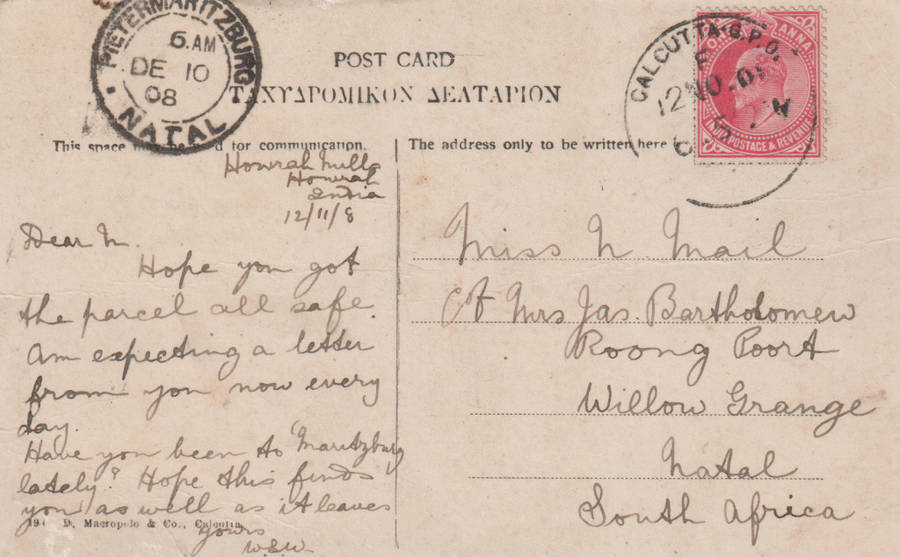 PIETERMARITZBURG
6 AM
DE 10
08
NATAL
POST CARD
ΤΑΧΥΔΡΟΜΙΚΟΝ ΔΕΛΤΑΡΙΟΝ
CALCUTTA G.P.O.
12 NO. 08
ONE ANNA
INDIA POSTAGE & REVENUE
This space may be used for communication.
The address only to be written here
Howrah Mills
Howrah
India
12/11/8
Dear N.
Hope you got
the parcel all safe.
Am expecting a letter
from you now every
day.
Have you been to 'Maritzburg
lately? Hope this finds
you as well as it leaves
yours
W.S.W.
D. Macropolo & Co., Calcutta
Miss N Mail
c/o Mrs Jas. Bartholomew
Roong Poort
Willow Grange
Natal
South Africa